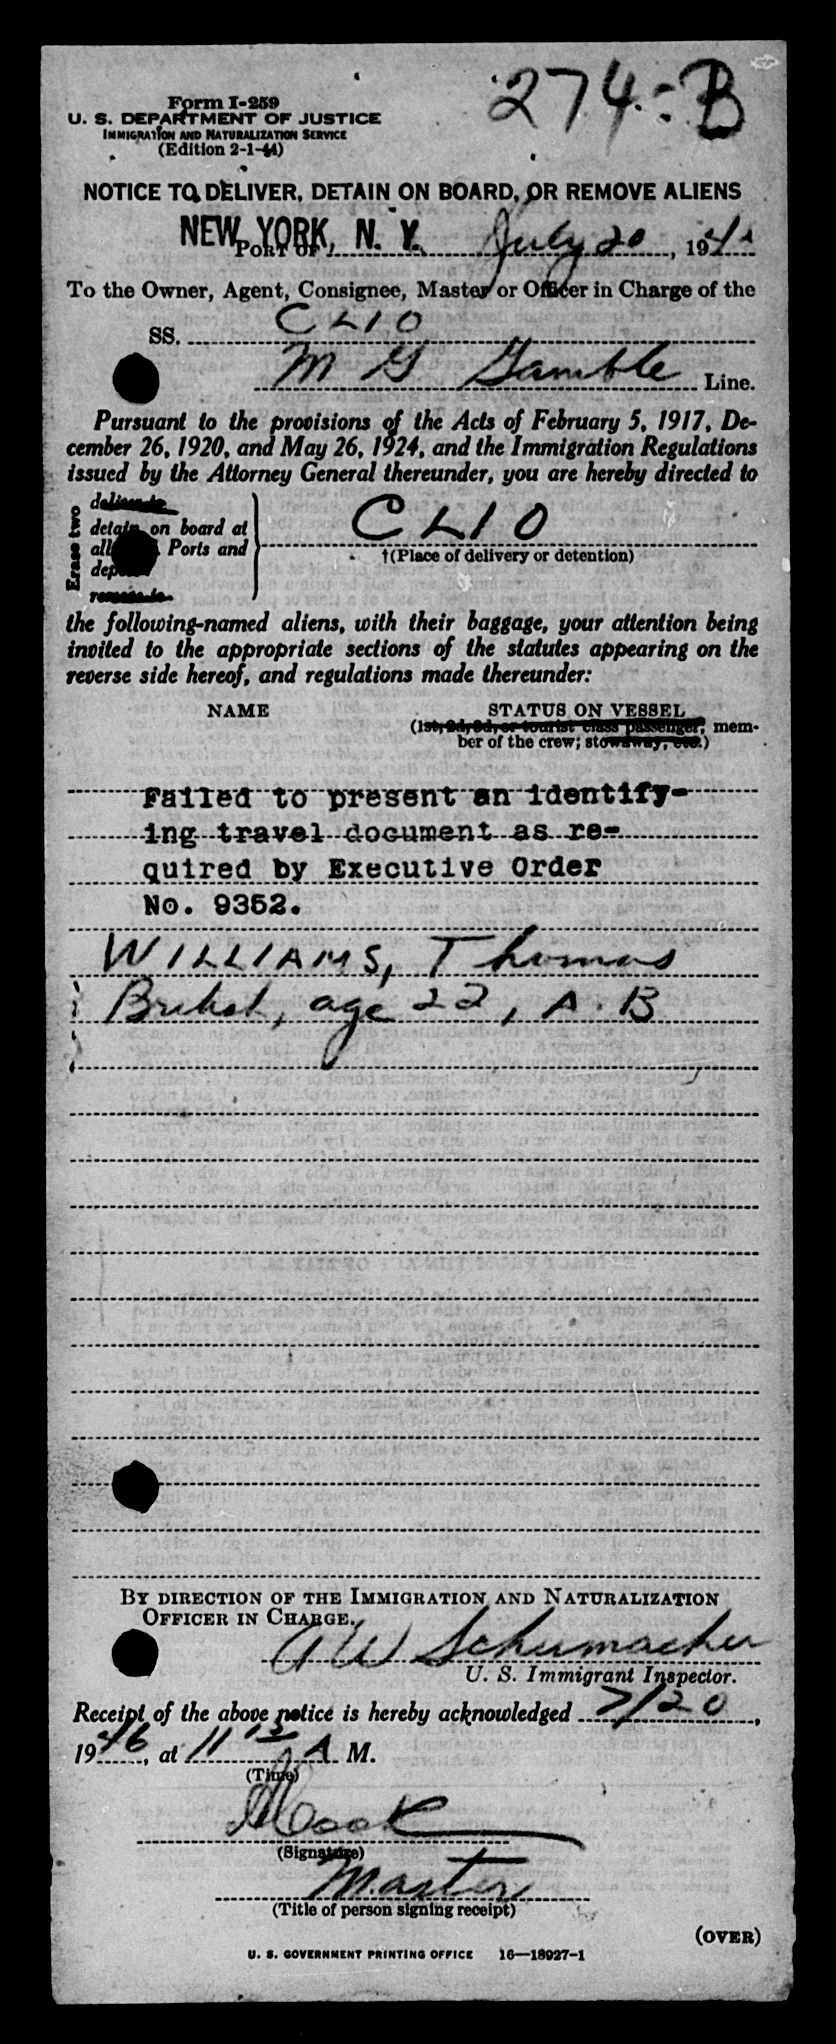 274-B
Form I-259
U. S. DEPARTMENT OF JUSTICE
IMMIGRATION AND NATURALIZATION SERVICE
(Edition 2-1-44)
NOTICE TO DELIVER, DETAIN ON BOARD, OR REMOVE ALIENS
NEW YORK, N. Y.
PORT OF July 20, 194
To the Owner, Agent, Consignee, Master or Officer in Charge of the
SS. CLIO
M G Gamble Line.
Pursuant to the provisions of the Acts of February 5, 1917, De-
cember 26, 1920, and May 26, 1924, and the Immigration Regulations
issued by the Attorney General thereunder, you are hereby directed to
Erase two
deliver to
detain on board at
all Ports and
CLIO
†(Place of delivery or detention)
remove to
the following-named aliens, with their baggage, your attention being
invited to the appropriate sections of the statutes appearing on the
reverse side hereof, and regulations made thereunder:
NAME STATUS ON VESSEL
(1st, 2d, 3d, or tourist class passenger; mem-
ber of the crew; stowaway, etc.)
Failed to present an identify-
ing travel document as re-
quired by Executive Order
No. 9352.
WILLIAMS, Thomas
British, age 22, A.B
BY DIRECTION OF THE IMMIGRATION AND NATURALIZATION
OFFICER IN CHARGE.
A W Schumacher
U. S. Immigrant Inspector.
Receipt of the above notice is hereby acknowledged 7/20,
1946, at 11 15 A M.
(Time)
(Signature)
Master
(Title of person signing receipt)
(OVER)
U. S. GOVERNMENT PRINTING OFFICE 16—18927-1